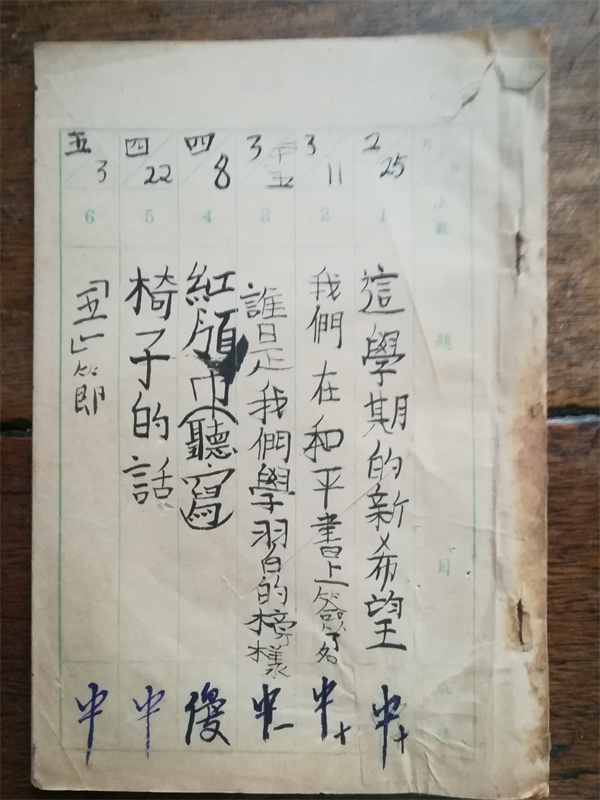 月
題目
2/25
1
這學期的新希望
中+
3/11
2
我們在和平書上簽了名
中+
3/廿五
3
誰是我們學習的榜樣
中-
四/8
4
紅領巾(聽寫)
優
四/22
5
椅子的話
中
五/3
6
「五一」節
中